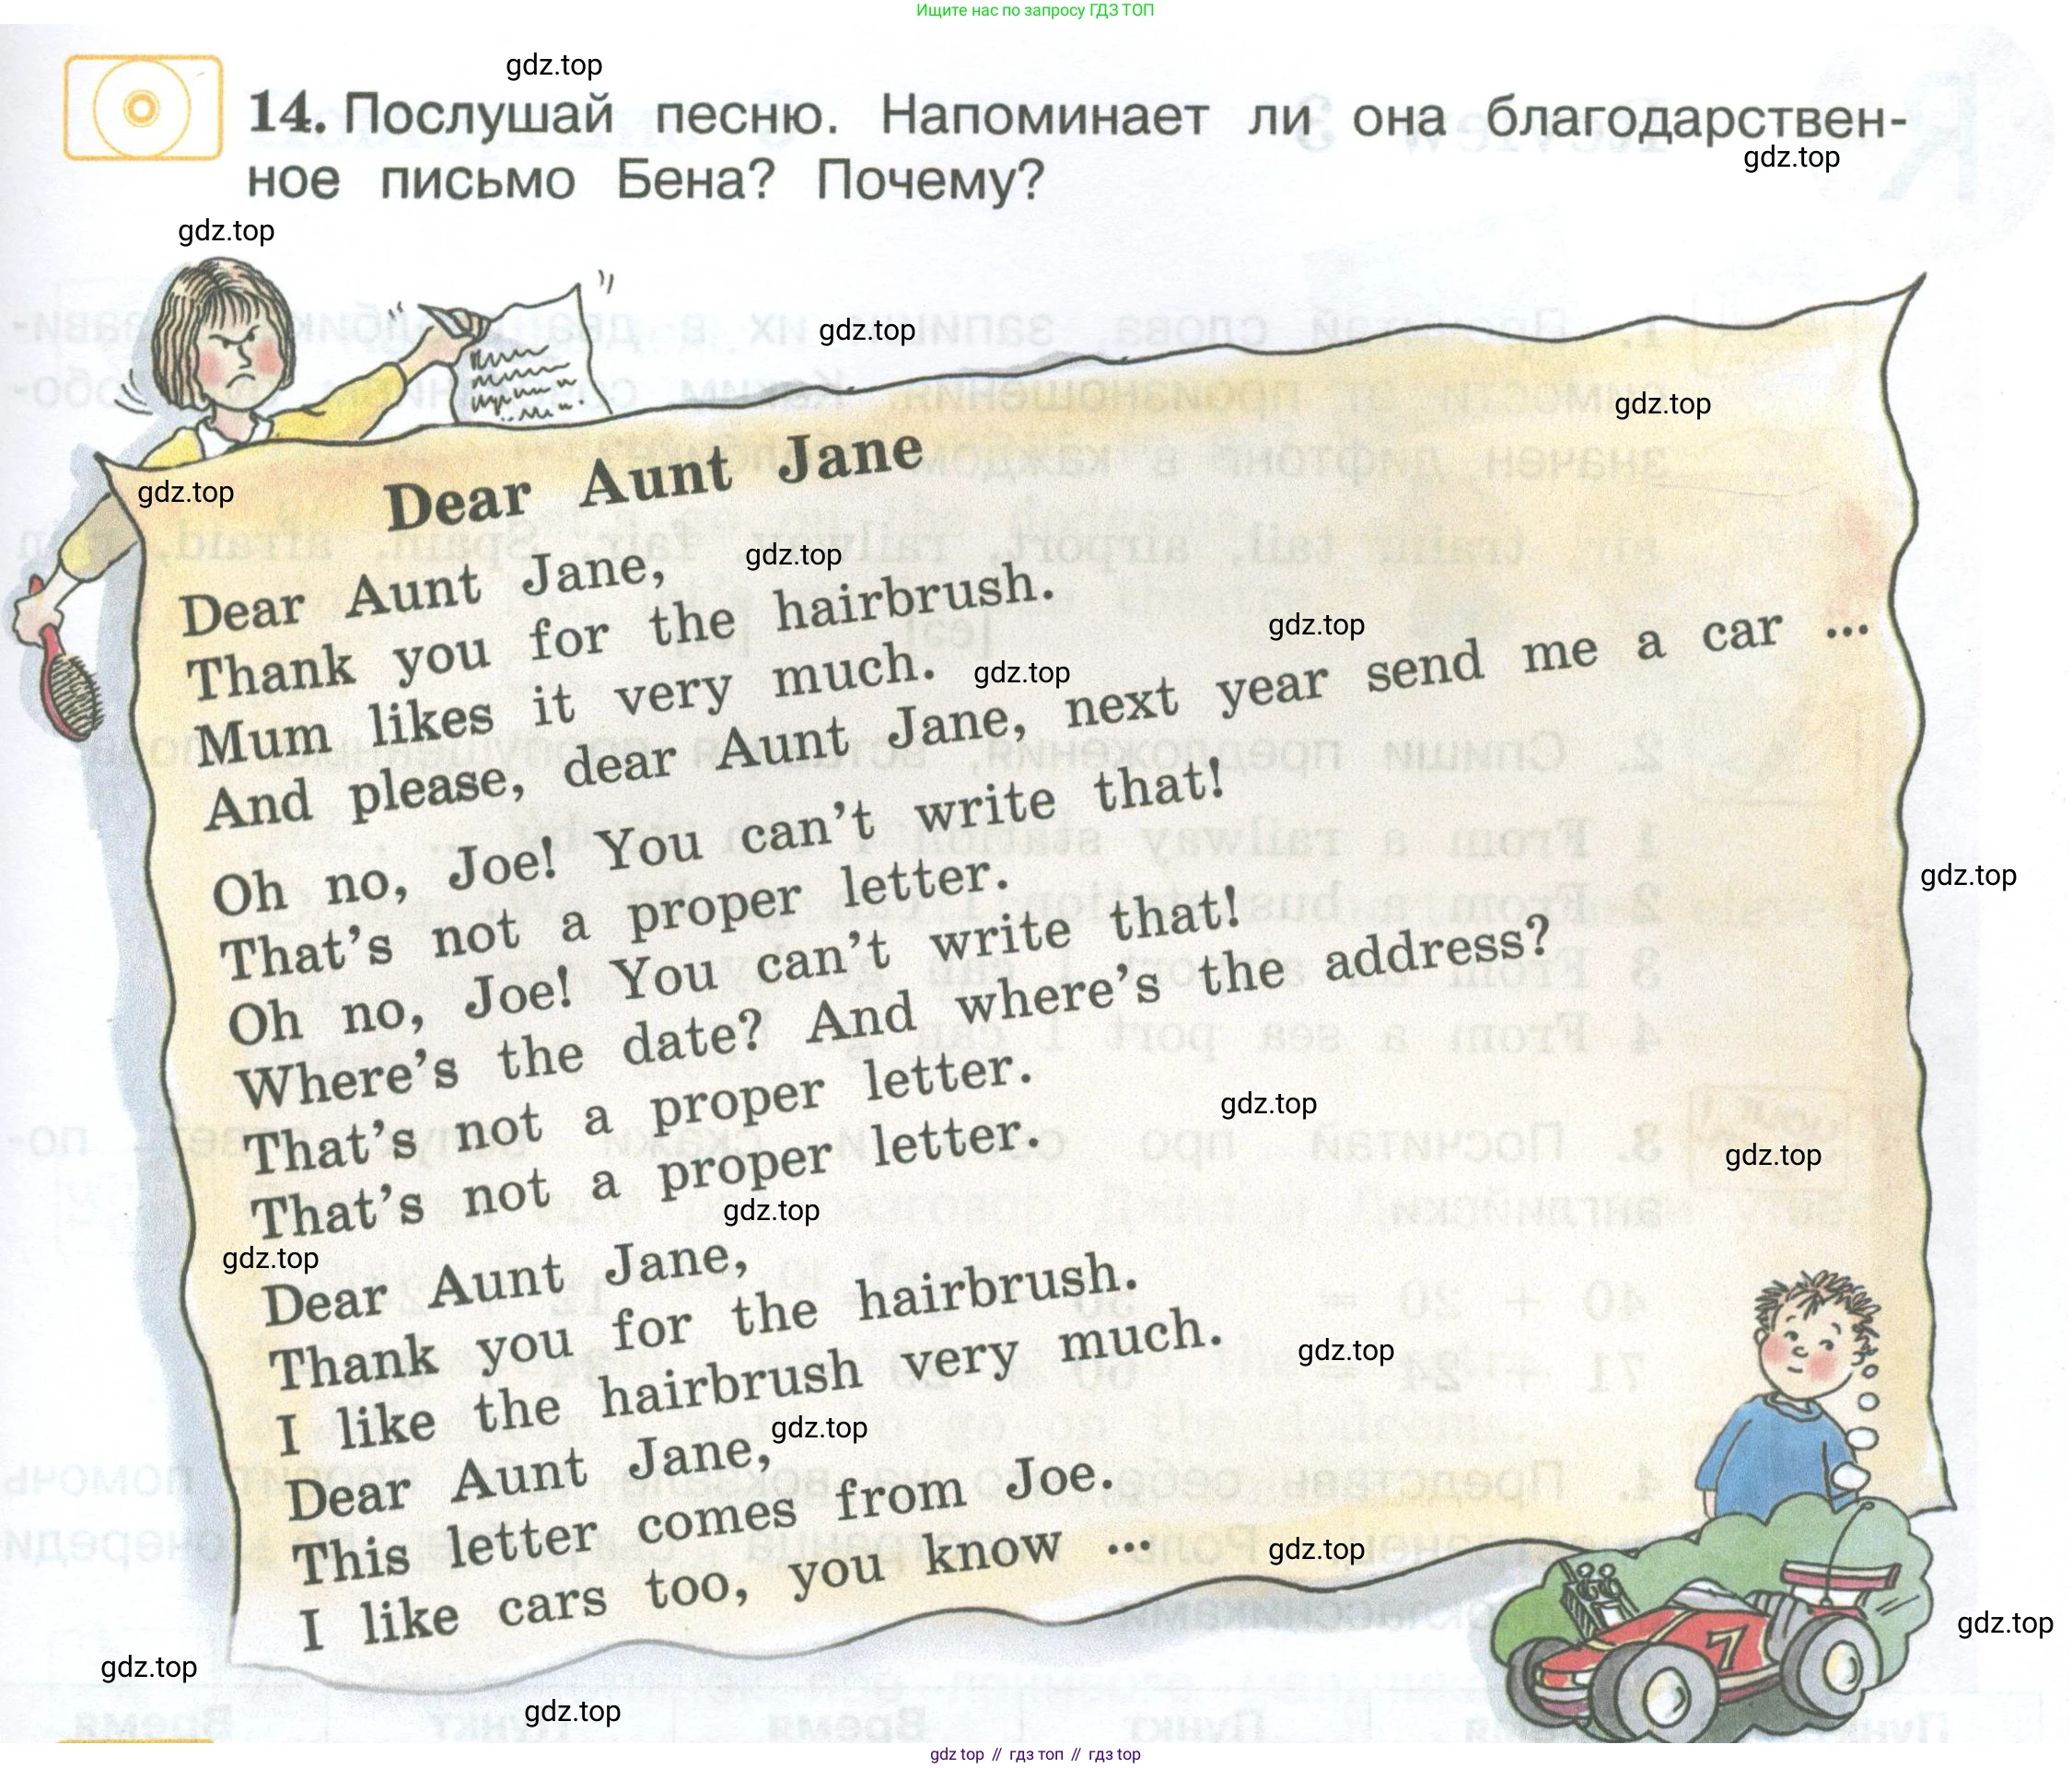 Ищите нас по запросу ГДЗ ТОП
gdz.top
14. Послушай песню. Напоминает ли она благодарствен-
gdz.top
ное письмо Бена? Почему?
gdz.top
gdz.top
gdz.top
Dear Aunt Jane
gdz.top
gdz.top
Dear Aunt Jane,
Thank you for the hairbrush.
gdz.top
Mum likes it very much.
gdz.top
And please, dear Aunt Jane, next year send me a car ...
Oh no, Joe! You can't write that!
gdz.top
That's not a proper letter.
Oh no, Joe! You can't write that!
Where's the date? And where's the address?
That's not a proper letter.
gdz.top
gdz.top
That's not a proper letter.
gdz.top
gdz.top
Dear Aunt Jane,
Thank you for the hairbrush.
gdz.top
I like the hairbrush very much.
gdz.top
Dear Aunt Jane,
This letter comes from Joe.
gdz.top
I like cars too, you know ...
gdz.top
7
gdz.top
gdz.top
gdz top // гдз топ // гдз top